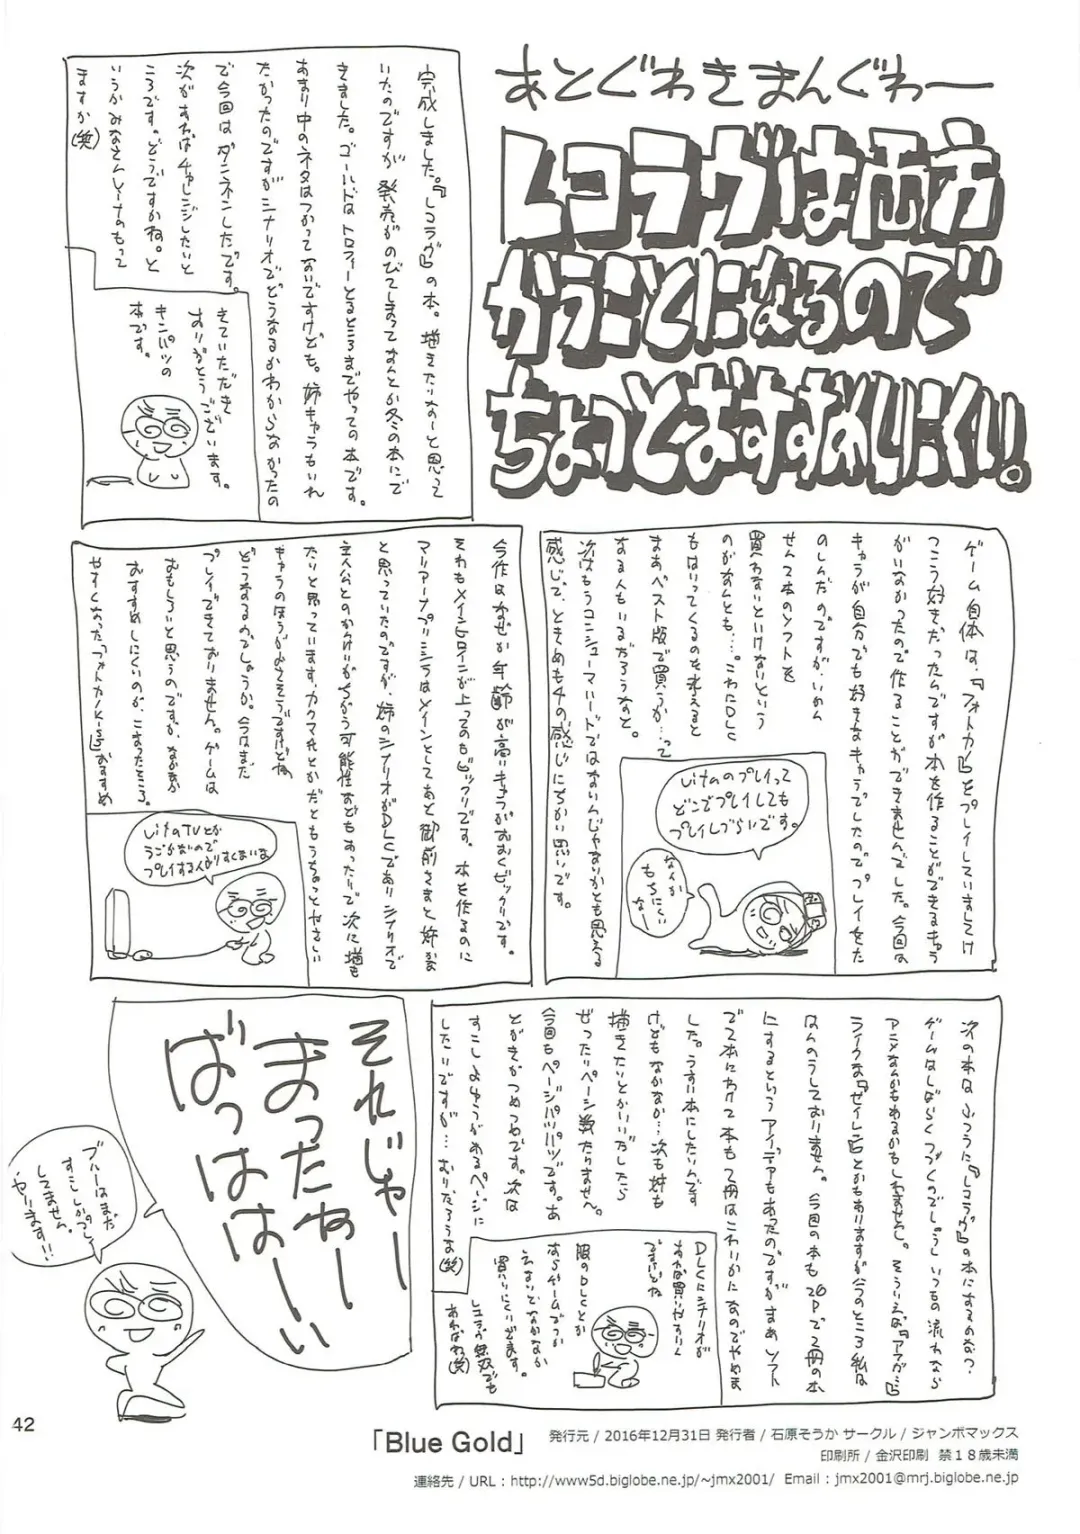 あとぐわきまんぐわー
レコラヴは両方
かうことになるので
ちょっとおすすめしにくい。
完成しました。『レコラヴ』の本。描きたいなーと思って
いたのですが 発売がのびてしまってなんとか冬の本にで
きました。ゴールドはトロフィーとるところまでやっての本です。
あまり中のネタはつかってないですけども。姉キャラもいれ
たかったのですがシナリオでどうなるかわからなかったの
で今回はダンネンしたです。
次があればチャレンジしたいと
ころです。どうですかね。と
いうかみなさんレナのもって
ますか(笑)
きていただき
ありがとうございます。
キンパツの
本です。
ゲーム自体は、『フォトカノ』をプレイしていましてけ
っこう好きだったんですが本を作ることができるキャラ
がいなかったので作ることができませんでした。今回の
キャラが自分でも好きなキャラでしたのでプレイをた
のしんだのですが、いかん
せん2本のソフトを
買わないといけないという
のがなんとも…。これにDLC
もはいってくるのを考えると
まあベスト版で買うか…って
なる人もいるだろうなと。
次はもうコンシューマハードではないんじゃないかとも思える
感じで、ときめも4の感じにちかい思いです。
Vitaのプレイって
どこでプレイしても
プレイしづらいです。
なんか
もちにくい
なー
今作はなぜか年齢が高いキャラがおおくビックリです。
それもメインヒロインが上ってのもビックリです。本を作るのに
マリアーナプリシラはメインとしてあと御前さまと姉かな
と思っていたのですが、姉のシナリオがDLCでありシナリオで
主人公とのかけいがちがう可能性などもあったりで次に描き
たいと思っています。カクマれとかだともうちょっとやさしい
キャラのほうがよさそうですけどね
どうなるかでしょうか。今はまだ
プレイできておりません。ゲームは
おもしろいと思うのですが、なかなか
おすすめしにくいのが、こまったところ。
やすくなった『フォトカノKiss』おすすめ
VitaのTVとか
うごかないので
プレイする人よりすくないな
次の本はふつうに『レコラヴ』の本にするのかな?
ゲームはしばらくつづくのでしょうし いつもの流れなら
アニメなんかもあるかもしれませんし。そういえば『アマガミ』
ライクな『セイレン』とかもありますが今のところ私は
はんのうしておりません。今回の本も20Pで2冊の本
にするというアイデアもあったのですがまあソフト
で2本にわけて本も2冊はこわいかになのでやめま
した。うすい本にしたいんです
けどもなかなか…次も姉も
描きたいとかいいだしたら
ぜったいページ数たりませぬ。
今回もページパツパツです。あ
とがきがかつめつめです。次は
すこしよゆうがあるページに
したいですが…むりだろうな(笑)
DLCにシナリオが
あれば買いやすいん
ですけどね
服のDLCとか
ならゲームでつか
えないとなかなか
買いにくいでます。
レコラヴ無双でも
あればね(笑)
それじゃー
まったねー
ばっはは ーい
ブルーはまだ
すこししかプレイ
してません。
やります!!
42
「Blue Gold」
発行元 / 2016年12月31日 発行者 / 石原そうか サークル / ジャンボマックス
印刷所 / 金沢印刷 禁18歳未満
連絡先 / URL : http://www5d.biglobe.ne.jp/~jmx2001/ Email : jmx2001@mrj.biglobe.ne.jp